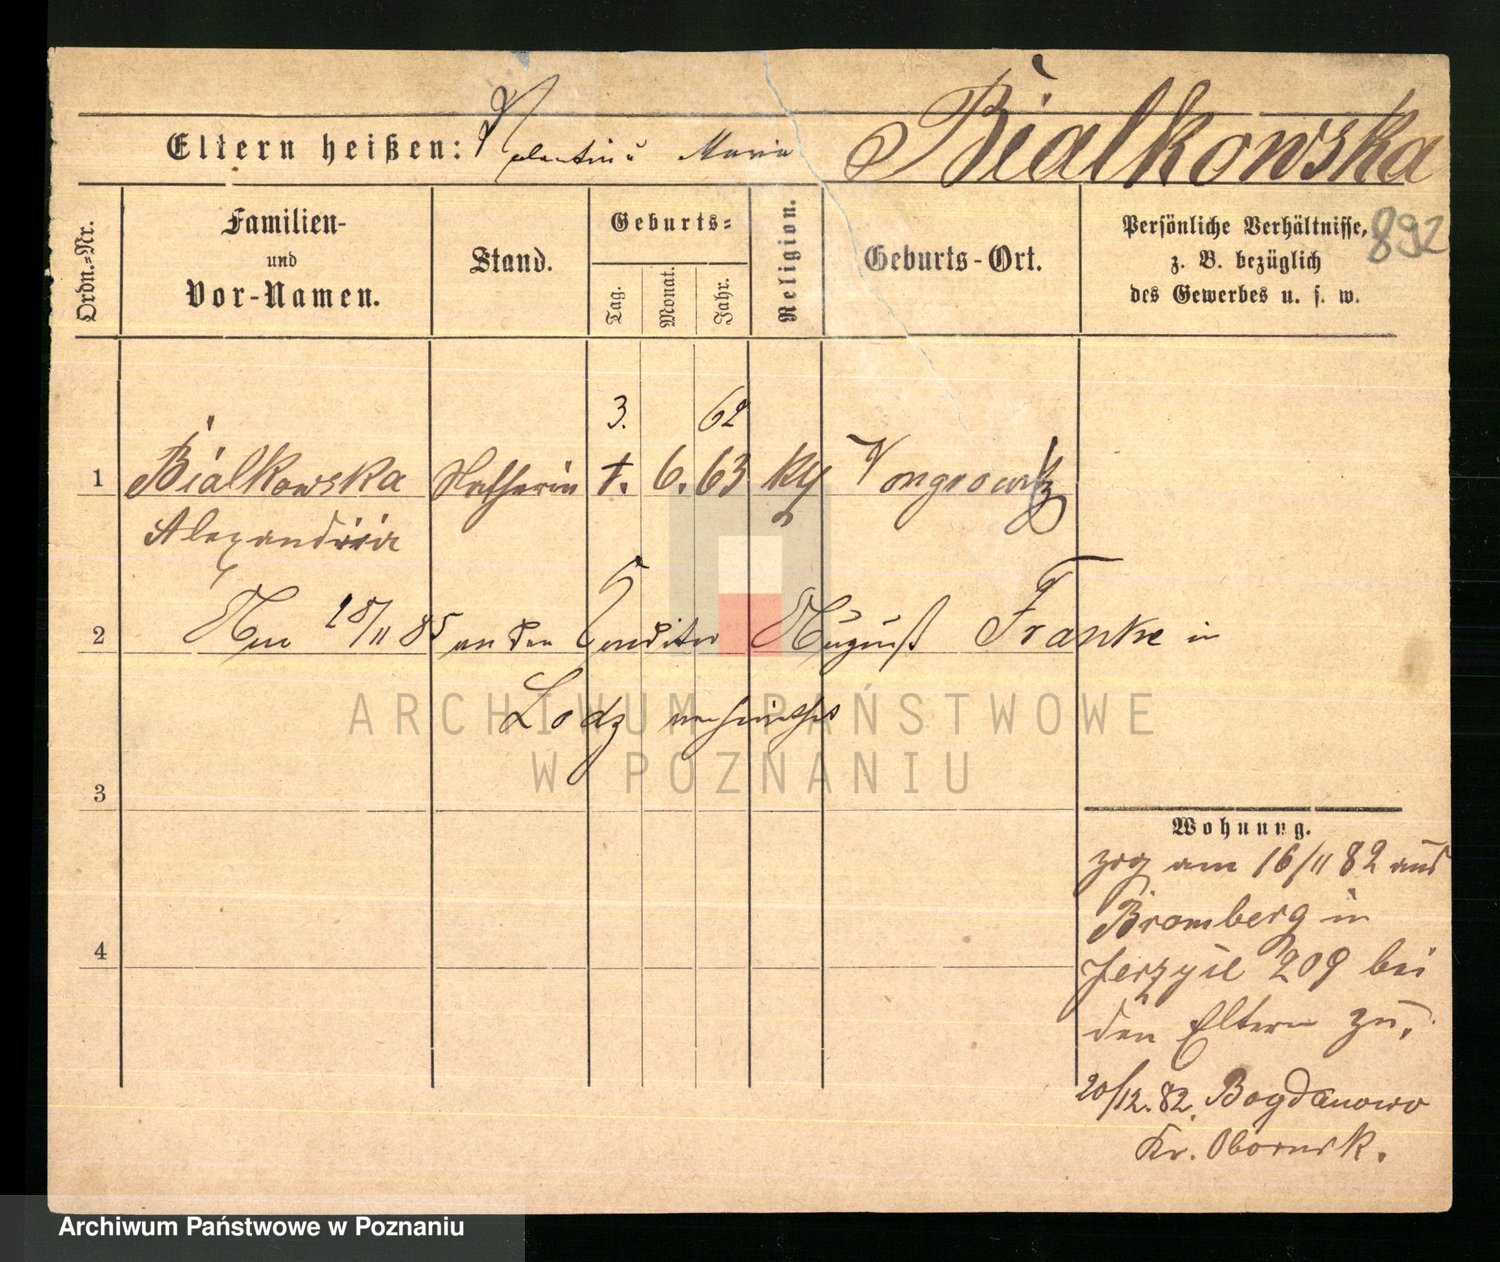 Eltern heißen: Valentin u Maria Bialkowska
892
Ordn.=Nr.
Familien-
und
Vor-Namen.
Stand.
Geburts=
Tag.
Monat.
Jahr.
Religion.
Geburts-Ort.
Persönliche Verhältnisse,
z. B. bezüglich
des Gewerbes u. s. w.
3. 62
1 Bialkowska 6. 63 Wongrowitz
Alexandria
2 28/11 85 an den Conditor August Franke in
Lodz verheirathet
3
4
Wohnung.
zog am 16/11 82 aus
Bromberg in
Jerzyce 209 bei
den Eltern zu.
20/12. 82. Bogdanowo
Kr. Obornik.
ARCHIWUM PAŃSTWOWE
W POZNANIU
Archiwum Państwowe w Poznaniu